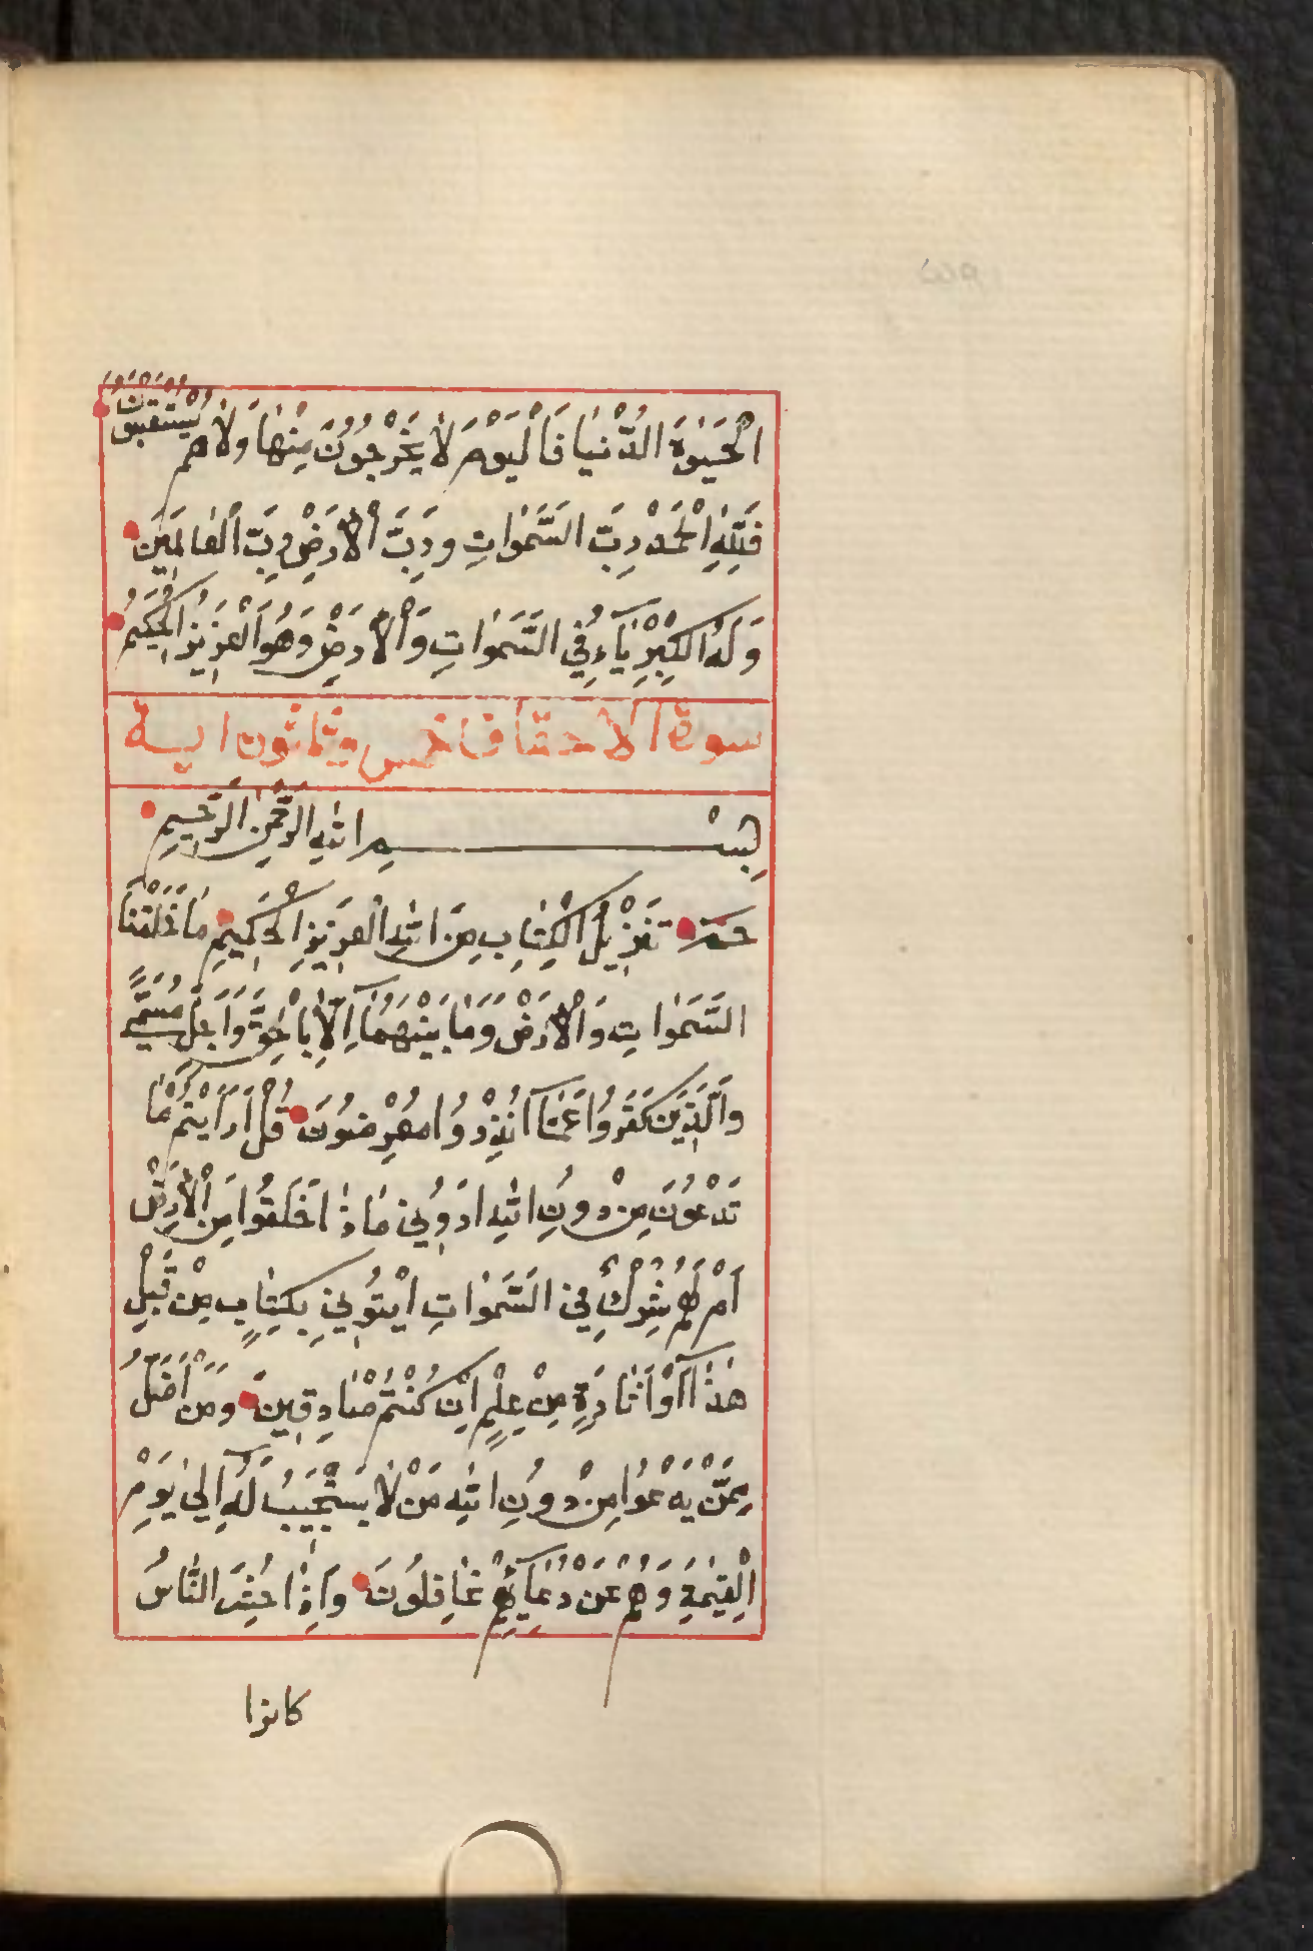 الْحَيٰوةَ الدُّنْيَا فَالْيَوْمَ لَا يُخْرَجُونَ مِنْهَا وَلَا هُمْ يُسْتَعْتَبُونَ
فَلِلّٰهِ الْحَمْدُ رَبِّ السَّمٰوَاتِ وَرَبِّ الْأَرْضِ رَبِّ الْعَالَمِينَ
وَلَهُ الْكِبْرِيَآءُ فِي السَّمٰوَاتِ وَالْأَرْضِ وَهُوَ الْعَزِيزُ الْحَكِيمُ
سورة الاحقاف خمس وثلثون اية
بِسْمِ اللهِ الرَّحْمٰنِ الرَّحِيمِ
حٓمٓ تَنْزِيلُ الْكِتَابِ مِنَ اللهِ الْعَزِيزِ الْحَكِيمِ مَا خَلَقْنَا
السَّمٰوَاتِ وَالْأَرْضَ وَمَا بَيْنَهُمَآ اِلَّا بِالْحَقِّ وَاَجَلٍ مُسَمًّى
وَالَّذِينَ كَفَرُوا عَمَّآ اُنْذِرُوا مُعْرِضُونَ قُلْ اَرَاَيْتُمْ مَا
تَدْعُونَ مِنْ دُونِ اللهِ اَرُونِي مَاذَا خَلَقُوا مِنَ الْأَرْضِ
اَمْ لَهُمْ شِرْكٌ فِي السَّمٰوَاتِ ايْتُونِي بِكِتَابٍ مِنْ قَبْلِ
هٰذَآ اَوْ اَثَارَةٍ مِنْ عِلْمٍ اِنْ كُنْتُمْ صَادِقِينَ وَمَنْ اَضَلُّ
مِمَّنْ يَدْعُوا مِنْ دُونِ اللهِ مَنْ لَا يَسْتَجِيبُ لَهُٓ اِلَى يَوْمِ
الْقِيٰمَةِ وَهُمْ عَنْ دُعَآئِهِمْ غَافِلُونَ وَاِذَا حُشِرَ النَّاسُ
كانوا